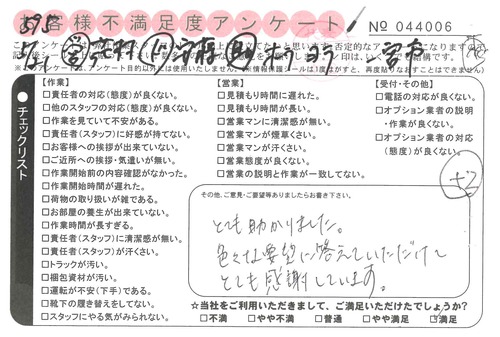 お客様不満足度アンケート
No 044006
【作業】
□責任者の対応(態度)が良くない。
□他のスタッフの対応(態度)が良くない。
□作業を見ていて不安がある。
□責任者(スタッフ)に好感が持てない。
□お客様への挨拶が出来ていない。
□ご近所への挨拶・気遣いが無い。
□作業開始前の内容確認がなかった。
□作業開始時間が遅れた。
□荷物の取り扱いが雑である。
□お部屋の養生が出来ていない。
□作業時間が長すぎる。
□責任者(スタッフ)に清潔感が無い。
□責任者(スタッフ)が汗くさい。
□トラックが汚い。
□梱包資材が汚い。
□運転が不安(下手)である。
□靴下の履き替えをしてない。
□スタッフにやる気がみられない。
【営業】
□見積もり時間に遅れた。
□見積もり時間が長い。
□営業マンに清潔感が無い。
□営業マンが煙草くさい。
□営業マンが汗くさい。
□営業態度が良くない。
□営業の説明と作業が一致してない。
【受付・その他】
□電話の対応が良くない。
□オプション業者の説明
・作業が良くない。
□オプション業者の対応
(態度)が良くない。
チェックリスト
その他、ご意見・ご要望等ありましたらお書き下さい。
とても助かりました。
色々な要望に答えていただけて
とても感謝しています。
☆当社をご利用いただきまして、ご満足いただけたでしょうか?
□不満 □やや不満 □普通 □やや満足 □満足